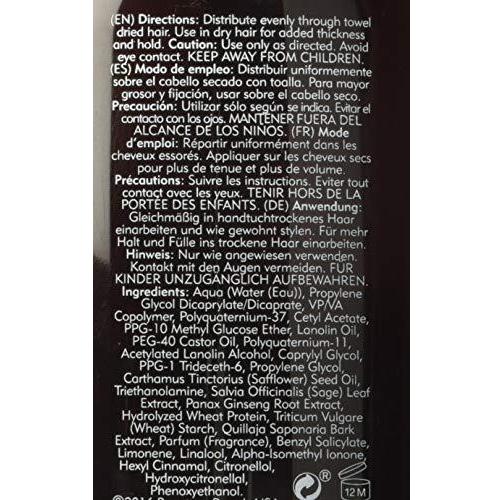 (EN) Directions: Distribute evenly through towel
dried hair. Use in dry hair for added thickness
and hold. Caution: Use only as directed. Avoid
eye contact. KEEP AWAY FROM CHILDREN.
(ES) Modo de empleo: Distribuir uniformemente
sobre el cabello secado con toalla. Para mayor
grosor y fijación, usar sobre el cabello seco.
Precaución: Utilizar sólo según se indica. Evitar el
contacto con los ojos. MANTENER FUERA DEL
ALCANCE DE LOS NIÑOS. (FR) Mode
d'emploi: Répartir uniformément dans les
cheveux essorés. Appliquer sur les cheveux secs
pour plus de tenue et plus de volume.
Précautions: Suivre les instructions. Eviter tout
contact avec les yeux. TENIR HORS DE LA
PORTÉE DES ENFANTS. (DE) Anwendung:
Gleichmäßig in handtuchtrockenes Haar
einarbeiten und wie gewohnt stylen. Für mehr
Halt und Fülle ins trockene Haar einarbeiten.
Hinweis: Nur wie angewiesen verwenden.
Kontakt mit den Augen vermeiden. FÜR
KINDER UNZUGÄNGLICH AUFBEWAHREN.
Ingredients: Aqua (Water (Eau)), Propylene
Glycol Dicaprylate/Dicaprate, VP/VA
Copolymer, Polyquaternium-37, Cetyl Acetate,
PPG-10 Methyl Glucose Ether, Lanolin Oil,
PEG-40 Castor Oil, Polyquaternium-11,
Acetylated Lanolin Alcohol, Caprylyl Glycol,
PPG-1 Trideceth-6, Propylene Glycol,
Carthamus Tinctorius (Safflower) Seed Oil,
Triethanolamine, Salvia Officinalis (Sage) Leaf
Extract, Panax Ginseng Root Extract,
Hydrolyzed Wheat Protein, Triticum Vulgare
(Wheat) Starch, Quillaja Saponaria Bark
Extract, Parfum (Fragrance), Benzyl Salicylate,
Limonene, Linalool, Alpha-Isomethyl Ionone,
Hexyl Cinnamal, Citronellol,
Hydroxycitronellal,
Phenoxyethanol.
12 M